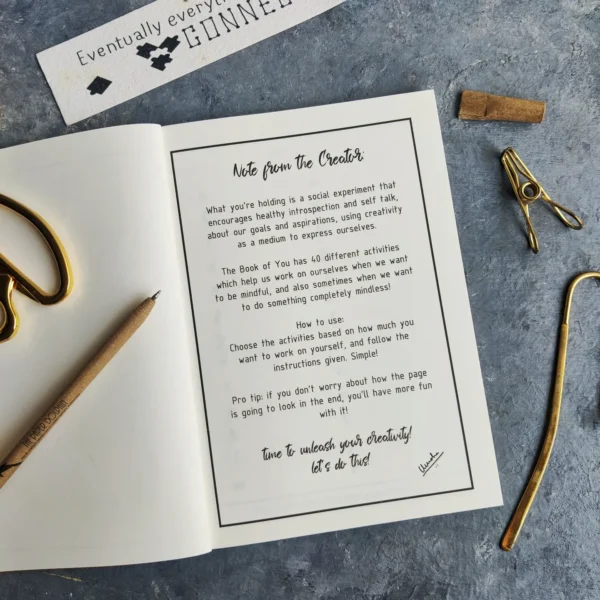 Eventually
CONNE
Note from the Creator:
What you're holding is a social experiment that
encourages healthy introspection and self talk,
about our goals and aspirations, using creativity
as a medium to express ourselves.
The Book of You has 40 different activities
which help us work on ourselves when we want
to be mindful, and also sometimes when we want
to do something completely mindless!
How to use:
Choose the activities based on how much you
want to work on yourself, and follow the
instructions given. Simple!
Pro tip: if you don't worry about how the page
is going to look in the end, you'll have more fun
with it!
time to unleash your creativity!
let's do this!